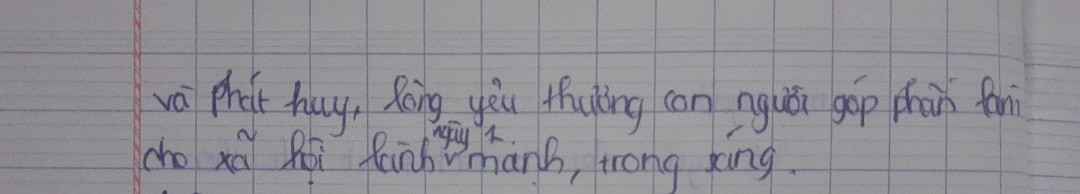 và phát huy, lòng yêu thương con người góp phần làm
cho xã hội lành ngày 1 mạnh, trong sáng.